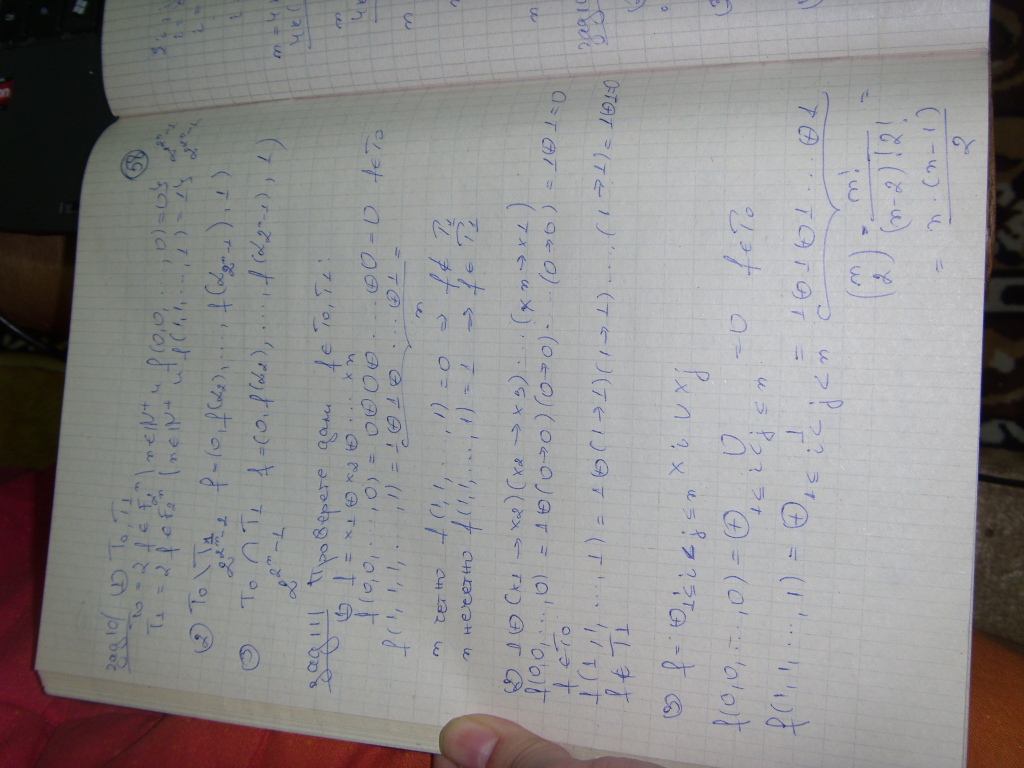 58
зад 10( ① T₀, T₁
T₀ = { f ∈ F₂ⁿ | n ∈ N⁺ и f(0,0,...,0) = 0 } 2^2ⁿ-1
T₁ = { f ∈ F₂ⁿ | n ∈ N⁺ и f(1,1,...,1) = 1 } 2^2ⁿ-1
② T₀ \ T₁ f = (0, f(α₂), ..., f(α2ⁿ-1), 1)
2^2ⁿ-2
③ T₀ ∩ T₁ f = (0, f(α₂), ..., f(α2ⁿ-1), 1)
2^2ⁿ-2
зад 11) Проверете дали f ∈ T₀, T₁:
① f = x1 ⊕ x2 ⊕ ... xn
f(0,0,...,0) = 0⊕0⊕0⊕...⊕0 = 0 f ∈ T₀
f(1,1,1,...,1) = 1⊕1⊕1⊕...⊕1 =
n
n четно f(1,1,...,1) = 0 ⇒ f ∉ T₁
n нечетно f(1,1,...,1) = 1 ⇒ f ∈ T₁
② 1 ⊕ (x1 → x2)(x2 → x3)...(xn → x1)
f(0,0,...,0) = 1⊕(0→0)(0→0)(0→0)...(0→0) = 1⊕1 = 0
f ∈ T₀
f(1,1,...,1) = 1⊕(1→1)(1→1)...(1→1) = 1⊕1=0
f ∉ T1
③ f = ⊕ 1≤i<j≤n xi ∨ xj
f(0,0,...,0) = ⊕ 0 = 0 f ∈ T₀
1≤i<j≤n
f(1,1,...,1) = ⊕ 1 = 1⊕1⊕1⊕1...⊕1
1≤i<j≤n
(n 2) = n! / (n-2)!2! =
= n.(n-1) / 2